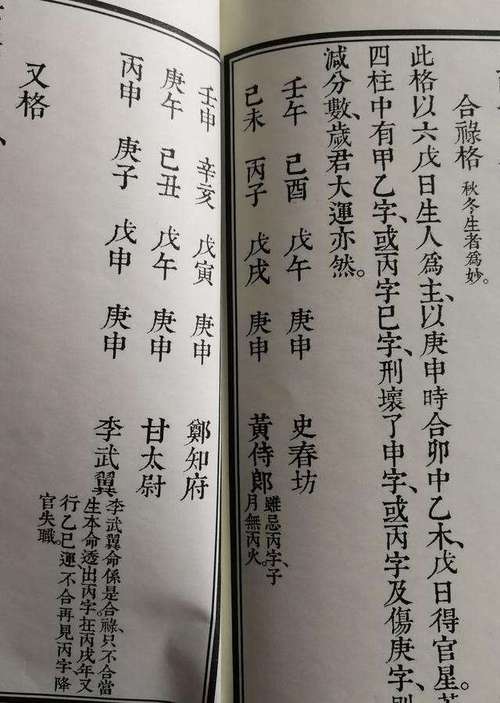 合祿格 秋冬生者爲妙。
此格以六戊日生人爲主、以庚申時合卯中乙木、戊日得官星。若
四柱中有甲乙字、或丙字巳字、刑壞了申字、或丙字及傷庚字、則
減分數、歲君大運亦然。
壬午 己酉 戊午 庚申 史春坊
己未 丙子 戊戌 庚申 黃侍郎 雖忌丙字、子
月無丙火。
壬申 辛亥 戊寅 庚申 鄭知府
庚午 己丑 戊午 庚申 甘太尉
丙申 庚子 戊申 庚申 李武翼 李武翼命係是合祿、只不合當
生本命透出丙字、在丙戌年又
行乙巳運、不合再見丙字、降
官失職。
又格